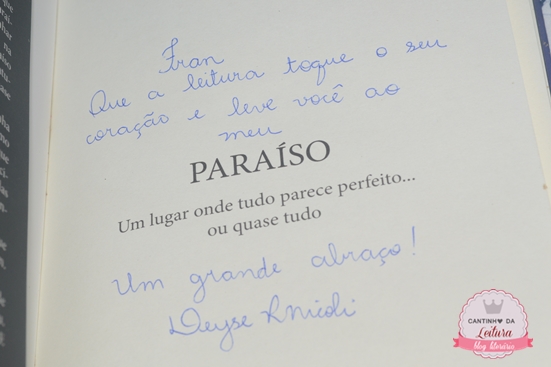 Fran
Que a leitura toque o seu
coração e leve você ao
meu
PARAÍSO
Um lugar onde tudo parece perfeito...
ou quase tudo
Um grande abraço!
Deyse
CANTINHO DA
Leitura
blog literário